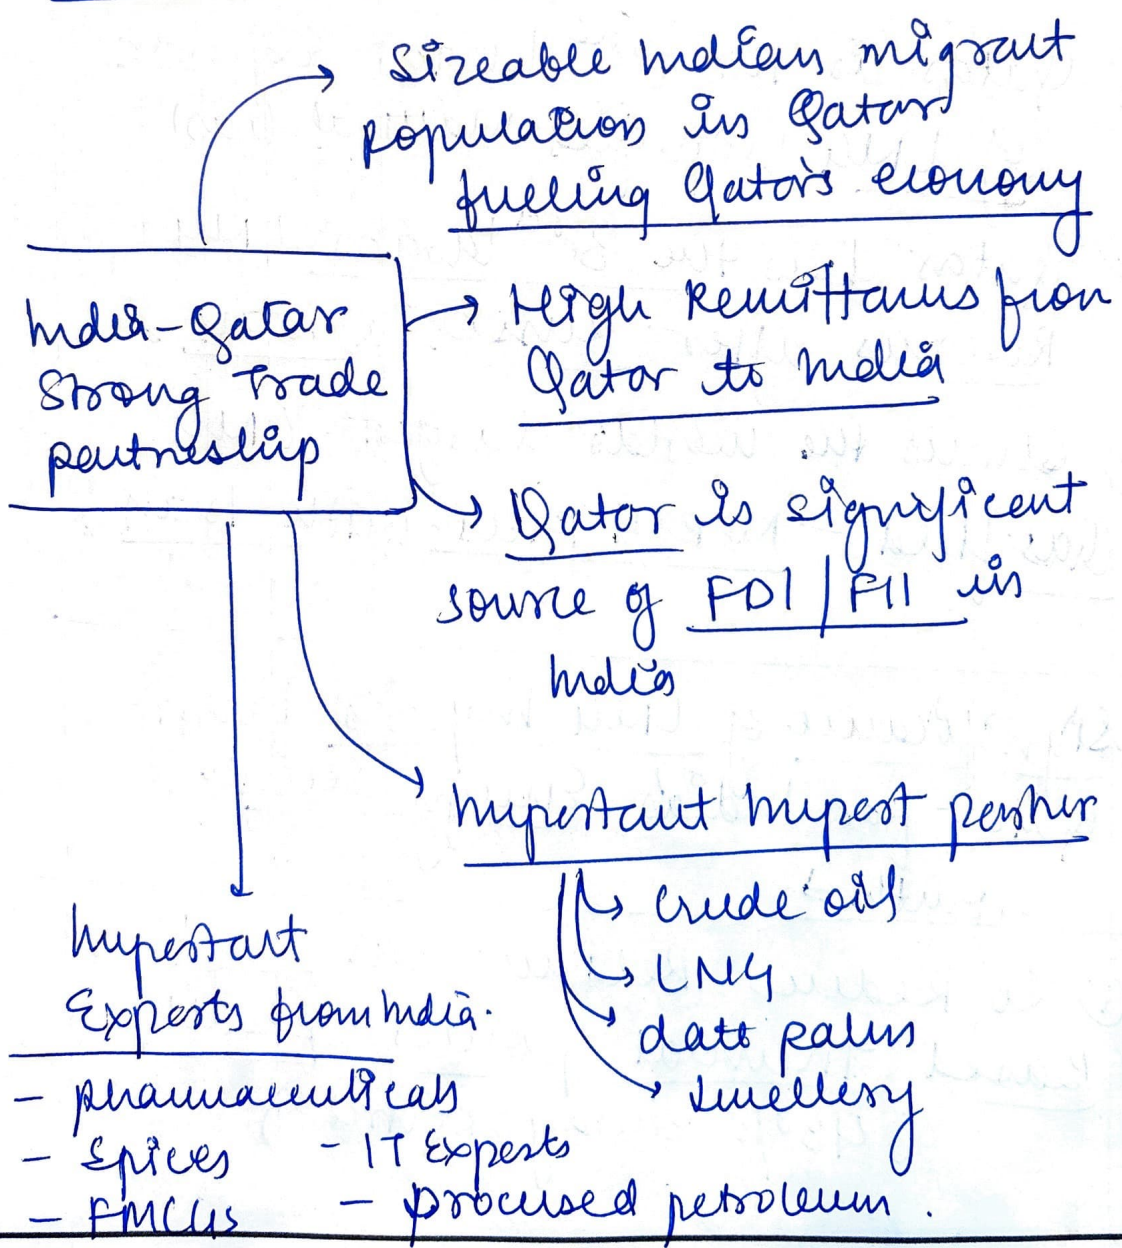 Sizeable Indian migrant
population in Qatar
fueling Qatar's economy
India-Qatar
Strong Trade
partnership
High Remittances from
Qatar to India
Qatar is significant
source of FDI/FII in
India
Important Import partner
crude oil
LNG
date palms
Jwellery
Important
Exports from India.
- pharmaceuticals
- Spices - IT Exports
- FMCGs - processed petroleum.